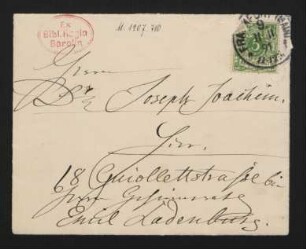 Ex
Bibl. Regia
Berolin.
M. 1907. 710
Herrn
Dr. Joseph Joachim.
Hier.
68 Guiollettstraße bei
Herrn Geheimrath
Emil Ladenburg.